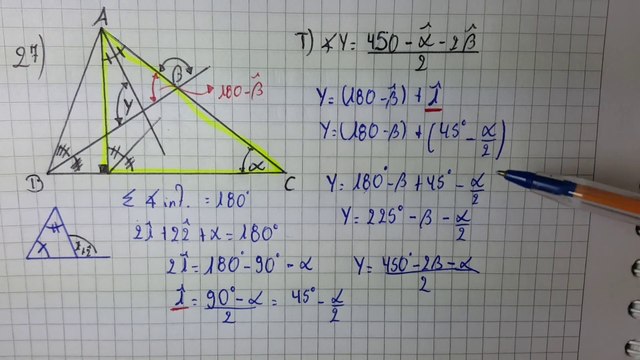 27)
A
B
C
β
γ
α
180-β̂
T) ∢γ = (450 - α̂ - 2β̂)/2
γ = (180 - β̂) + 1̂
γ = (180 - β) + (45° - α/2)
γ = 180° - β + 45° - α/2
γ = 225° - β - α/2
γ = (450° - 2β - α)/2
Σ ∢ int. = 180°
21̂ + 22̂ + α = 180°
21̂ = 180° - 90° - α
1̂ = (90° - α)/2 = 45° - α/2